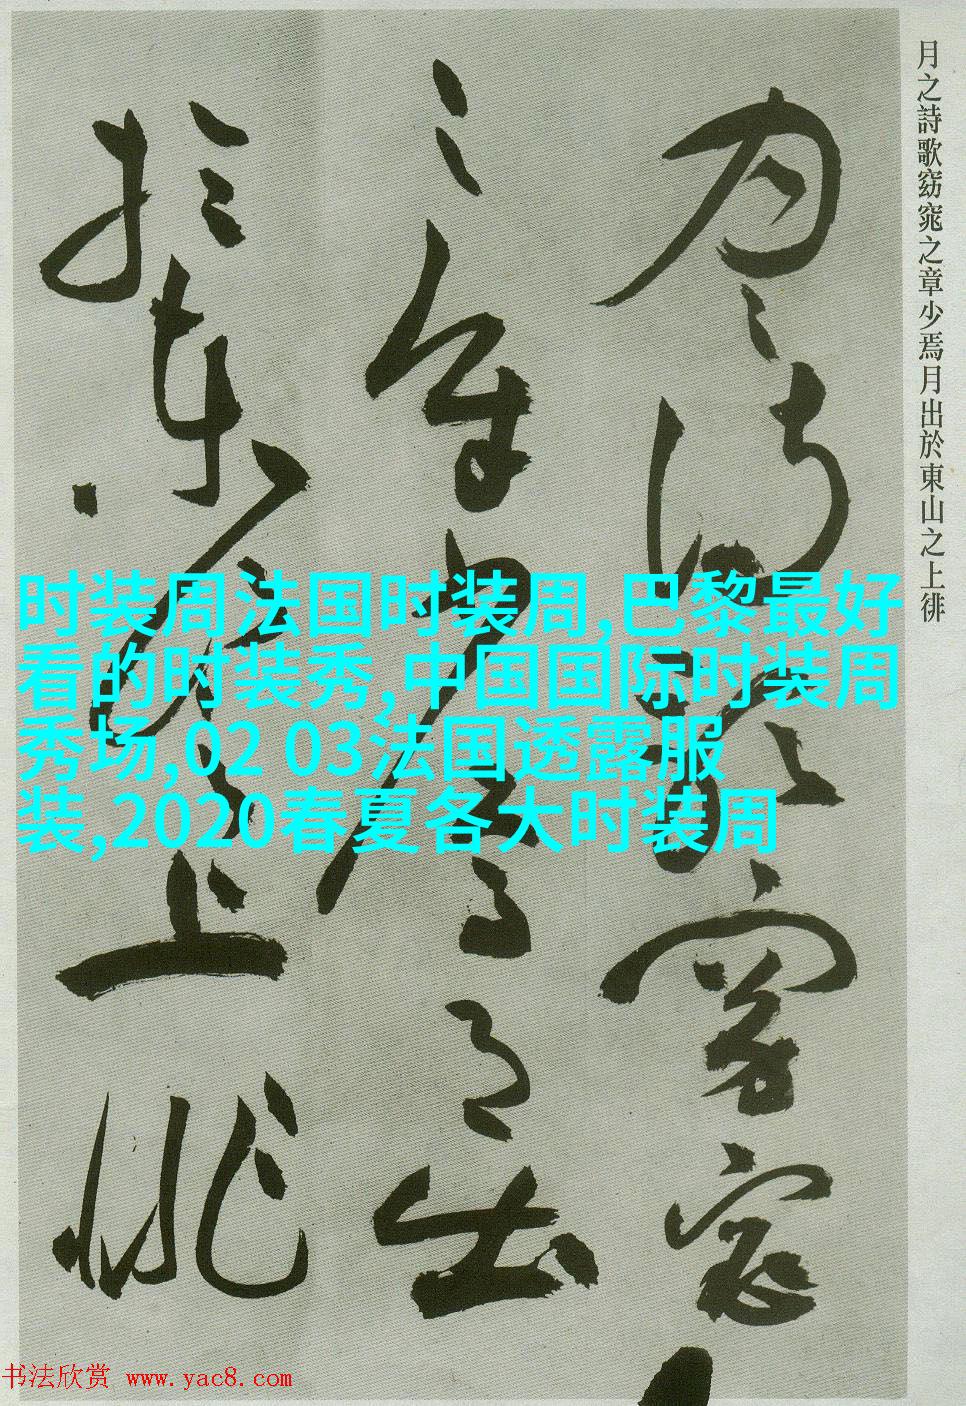 月之詩歌窈窕之章少焉月出於東山之上徘
月之詩歌窈窕
之章少焉月出
於東山之上徘
时装周法国时装周,巴黎最好
看的时装秀,中国国际时装周
秀场,02 03法国透露服
装,2020春夏各大时装周
书法欣赏 www.yac8.com